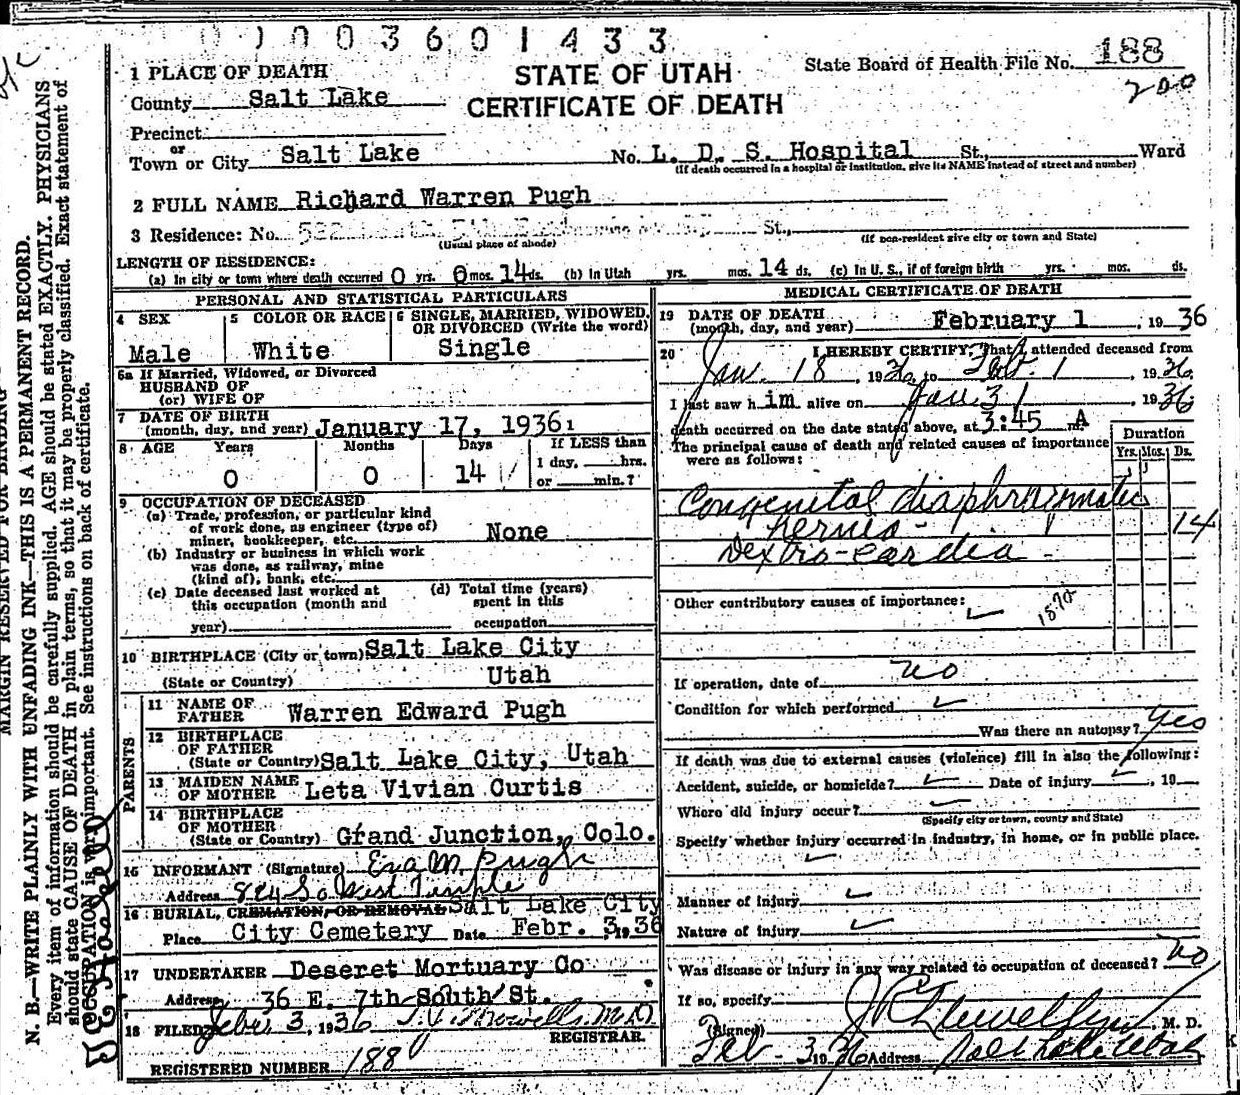 1003601433
STATE OF UTAH
CERTIFICATE OF DEATH
State Board of Health File No. 188
200
1 PLACE OF DEATH
County Salt Lake
Precinct
or
Town or City Salt Lake No. L. D. S. Hospital St., Ward
(If death occurred in a hospital or institution, give its NAME instead of street and number)
2 FULL NAME Richard Warren Pugh
3 Residence: No. St.,
(Usual place of abode) (If non-resident give city or town and State)
LENGTH OF RESIDENCE:
(a) In city or town where death occurred 0 yrs. 0 mos. 14 ds. (b) In Utah yrs. mos. 14 ds. (c) In U. S., if of foreign birth yrs. mos. ds.
PERSONAL AND STATISTICAL PARTICULARS
4 SEX 5 COLOR OR RACE 6 SINGLE, MARRIED, WIDOWED, OR DIVORCED (Write the word)
Male White Single
6a If Married, Widowed, or Divorced
HUSBAND OF
(or) WIFE OF
7 DATE OF BIRTH
(month, day, and year) January 17, 1936
8 AGE Years Months Days If LESS than
0 0 14 1 day, hrs.
or min.?
9 OCCUPATION OF DECEASED
(a) Trade, profession, or particular kind
of work done, as engineer (type of)
miner, bookkeeper, etc. None
(b) Industry or business in which work
was done, as railway, mine
(kind of), bank, etc.
(c) Date deceased last worked at (d) Total time (years)
this occupation (month and spent in this
year) occupation
10 BIRTHPLACE (City or town) Salt Lake City
(State or Country) Utah
PARENTS
11 NAME OF
FATHER Warren Edward Pugh
12 BIRTHPLACE
OF FATHER
(State or Country) Salt Lake City, Utah
13 MAIDEN NAME
OF MOTHER Leta Vivian Curtis
14 BIRTHPLACE
OF MOTHER
(State or Country) Grand Junction, Colo.
15 INFORMANT (Signature) Eva M. Pugh
Address 824 So West Temple
16 BURIAL, CREMATION, OR REMOVAL Salt Lake City
Place City Cemetery Date Febr. 3, 1936
17 UNDERTAKER Deseret Mortuary Co
Address 36 E. 7th South St.
18 FILED Febr 3, 1936 M.D.
REGISTRAR.
REGISTERED NUMBER 188
MEDICAL CERTIFICATE OF DEATH
19 DATE OF DEATH
(month, day, and year) February 1, 1936
20 I HEREBY CERTIFY, That I attended deceased from
Jan. 18, 1936, to Feb. 1, 1936
I last saw him alive on Jan 31, 1936
death occurred on the date stated above, at 3:45 A m.
The principal cause of death and related causes of importance
were as follows:
Duration
Yrs. Mos. Ds.
Congenital diaphragmatic
hernia - 14
Dextro-cardia -
Other contributory causes of importance:
If operation, date of no
Condition for which performed
Was there an autopsy? Yes
If death was due to external causes (violence) fill in also the following:
Accident, suicide, or homicide? Date of injury , 19
Where did injury occur?
(Specify city or town, county and State)
Specify whether injury occurred in industry, in home, or in public place.
Manner of injury
Nature of injury
Was disease or injury in any way related to occupation of deceased? No
If so, specify
(Signed) Llewellyn, M. D.
Feb - 3 1936 Address Salt Lake Utah
MARGIN RESERVED FOR BINDING
N. B.—WRITE PLAINLY WITH UNFADING INK—THIS IS A PERMANENT RECORD.
Every item of information should be carefully supplied. AGE should be stated EXACTLY. PHYSICIANS
should state CAUSE OF DEATH in plain terms, so that it may be properly classified. Exact statement of
OCCUPATION is very important. See instructions on back of certificate.